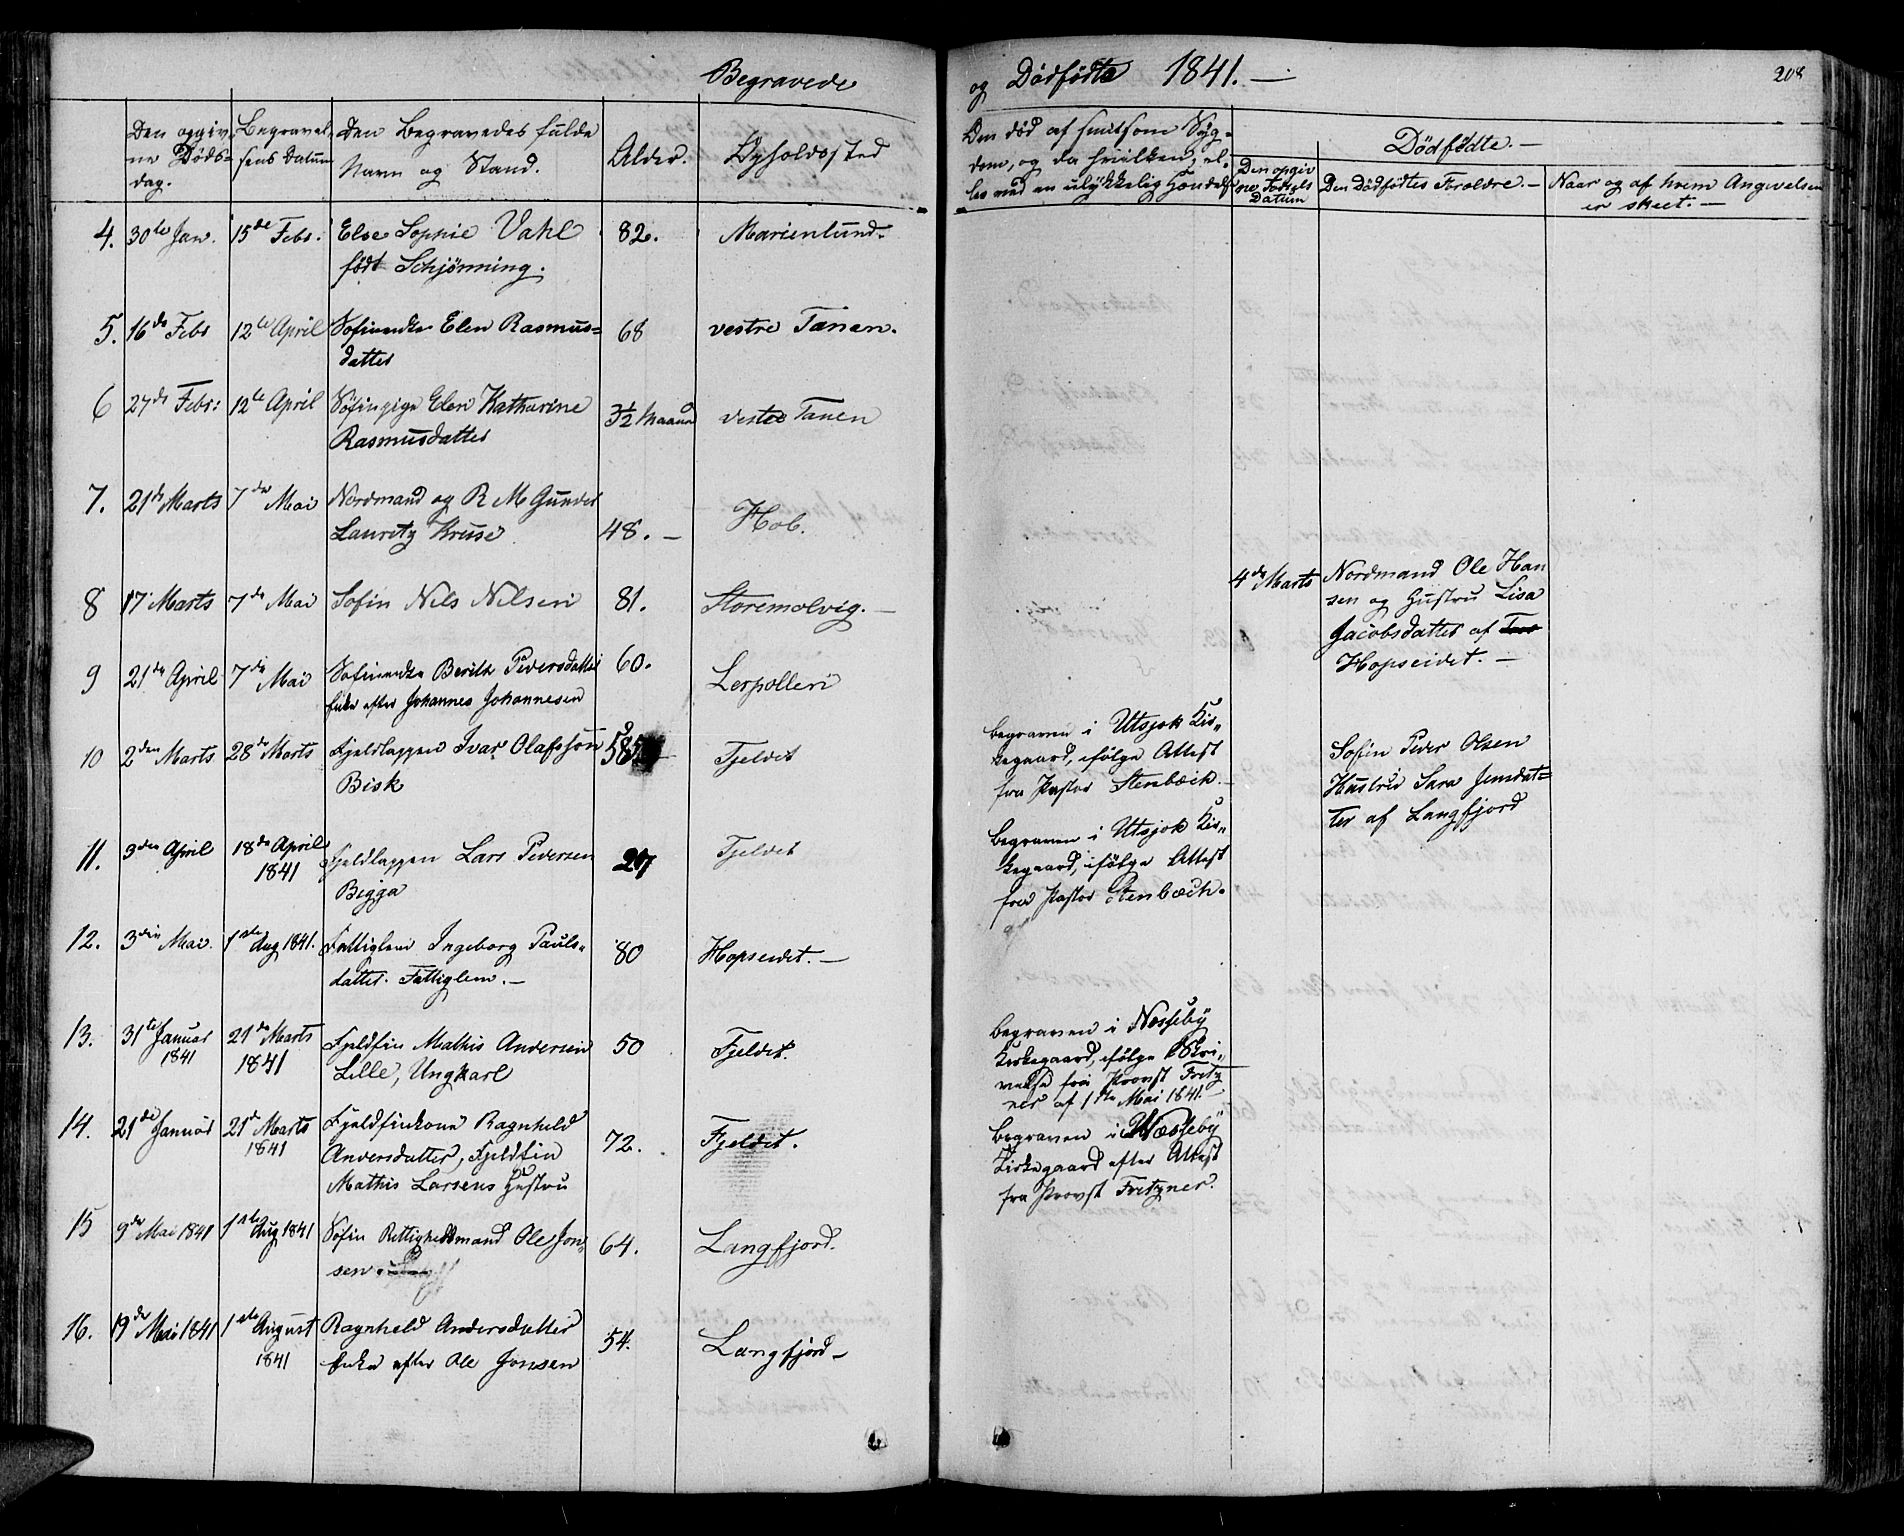 Begravede
Den opgiv-
ne Døds-
dag.
Begravel-
sens Datum
Den Begravedes fulde
Navn og Stand.
Alder.
Opholdssted
4. 30te Jan. 15de Febr: Else Sophie Vahl 82. Marienlund.
født Schjønning.
5. 16de Febr 12te April Søfinenke Elen Rasmus= 68 vestre Tanen.
datter
6 27de Febr: 12te April Søfinpige Elen Katharine 3½ Maaned vestre Tanen
Rasmusdatter
7. 21de Marts 7de Mai Nordmand og R M Gunder
Lauritz Kruse 48. — Hob.
8 17 Marts 7de Mai Sofin Nels Nilsen 81. Storemolvig. —
9 21de April 7de Mai Søfinenke Berith Pedersdatter 60. Lerpollen
Enke efter Johannes Johannesen
10 2den Marts 28de Marts Fjeldlappen Ivar Olafsson 58 Fjeldet
Bisk
11. 3den April 18de April Fjeldlappen Lars Pedersen 27 Fjeldet
1841
Bigga
12. 3die Mai. 1ste Aug 1841. Fattiglem Ingeborg Pauls= 80 Hopseidet. —
datter. Fattiglem. —
13. 31te Januar 21de Marts Fjeldfin Mathis Andersen 50 Fjeldet.
1841 1841 Lille, Ungkarl
14. 21de Januar 21de Marts Fjeldfinkone Ragnheld 72. Fjeldet.
1841 Andersdatter, Fjeldfin
Mathis Larsens Hustru
15 9de Mai 1841 1ste Aug 1841 Søfin Rettighedsmand Ole Jon= 64. Langfjord.
sen.
16. 19de Mai 1841 1ste August Ragnheld Andersdatter 54. Langfjord —
1841 Enke efter Ole Jonsen
og Dødfødte 1841. —
208
Om død af smitsom Syg=
dom, og da hvilken; el=
ler ved en ulykkelig Hændelse
Dødfødte. —
Den opgiv
ne Fødsels
Datum
Den Dødfødtes Forældre. —
Naar og af hvem Angivelsen
er skeet. —
4de Marts Nordmand Ole Han
sen og Hustru Lisa
Jacobsdatter af
Hopseidet. —
begraven i Utsjok Kir=
kegaard, ifølge Attest
fra Pastor Stenbæck. —
Sofin Peder Olsen
Hustru Sara Jensdat=
ter af Langfjord
begraven i Utsjok Kir=
kegaard, ifølge Attest
fra Pastor Stenbæck.
begraven i Næsseby
Kirkegaard, ifølge Skri=
velse fra Provst Fritz
ner af 1ste Mai 1841. —
begraven i Næsseby
Kirkegaard efter Attest
fra Provst Fritzner.